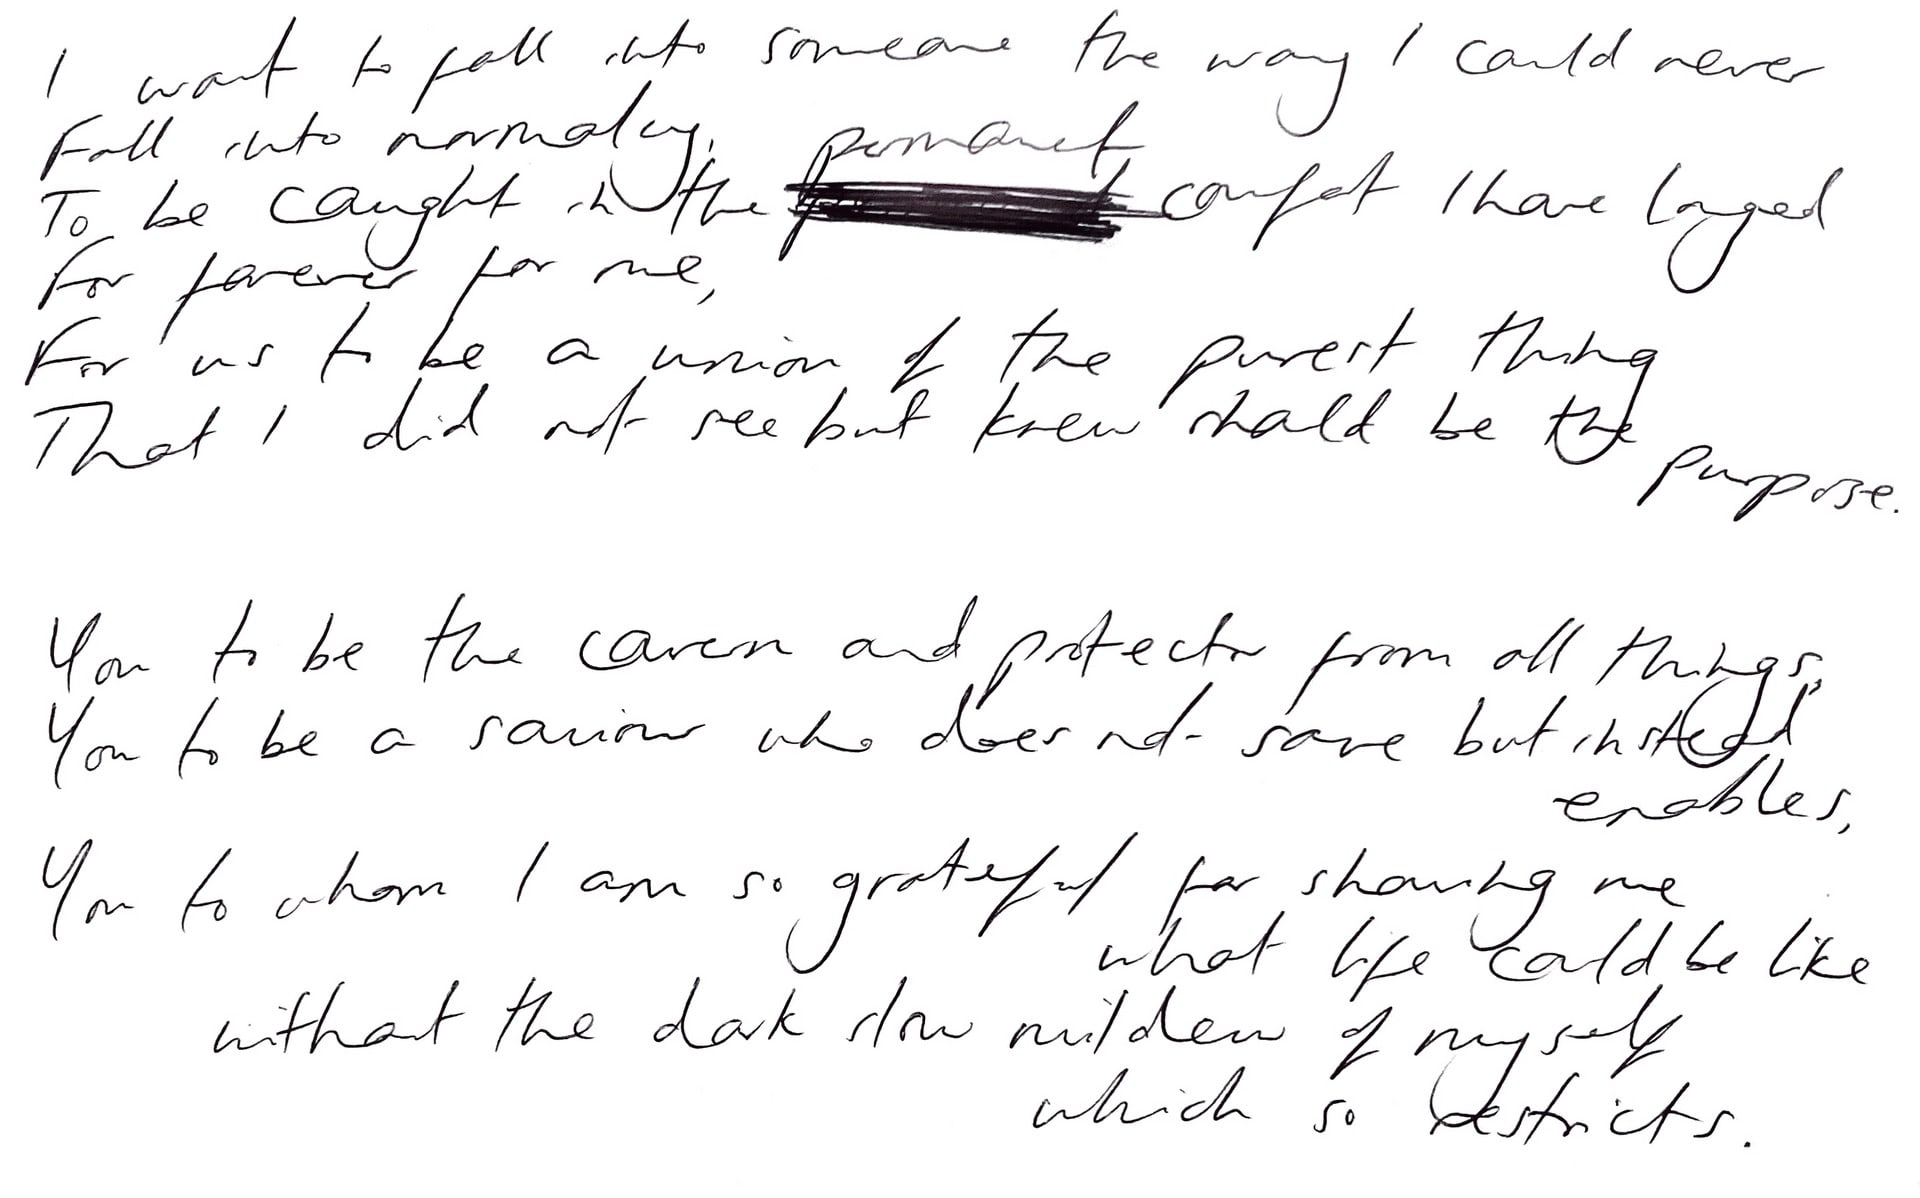 I want to fall into someone the way I could never
Fall into normalcy,
permanent
To be caught in the comfort I have longed
For forever for me,
For us to be a union of the purest thing
That I did not see but knew should be the
purpose.
You to be the cavern and protector from all things,
You to be a saviour who does not save but instead
enables,
You to whom I am so grateful for showing me
what life could be like
without the dark slow mildew of myself
which so restricts.